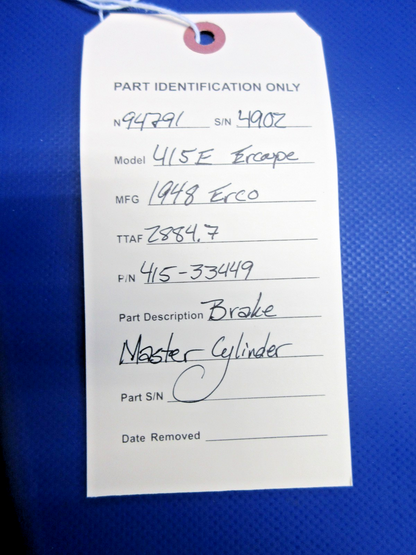 PART IDENTIFICATION ONLY
N 94791 S/N 4902
Model 415E Ercoupe
MFG 1948 Erco
TTAF 2884.7
P/N 415-33449
Part Description Brake
Master Cylinder
Part S/N
Date Removed